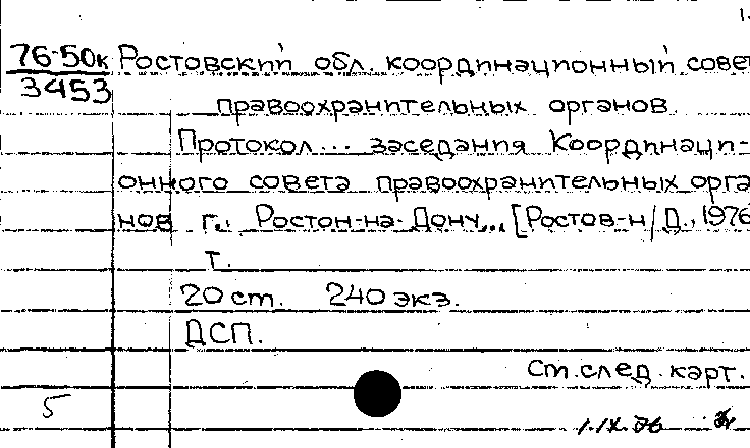 1.
76-50к Ростовский обл. координационный совет
3453
правоохранительных органов.
Протокол... заседания Координаци-
онного совета правоохранительных орга
нов г.: Ростон-на-Дону... [Ростов-н/Д., 1976
т.
20 ст. 240 экз.
ДСП.
Ст. след. карт.
5
1.IX.76